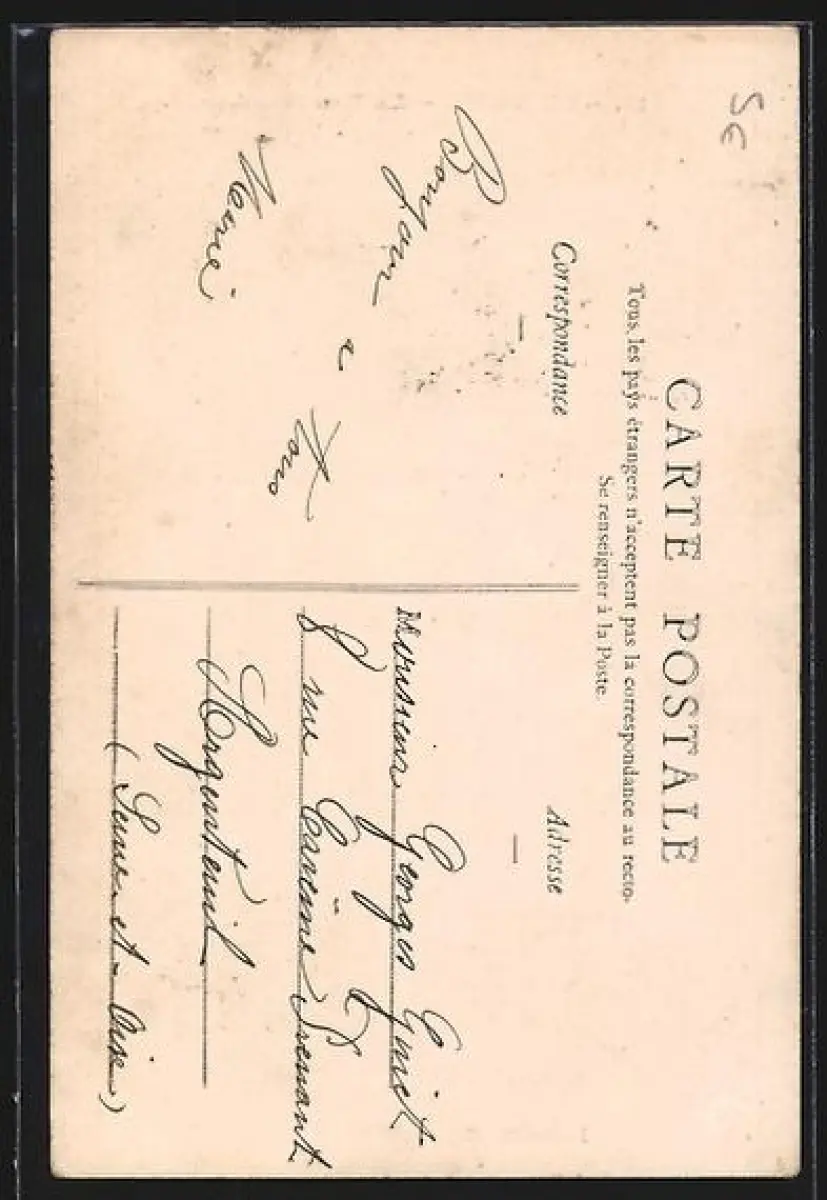 5€
CARTE POSTALE
Tous les pays étrangers n'acceptent pas la correspondance au recto.
Se renseigner à la Poste.
Correspondance
Bonjour
a tous
Adresse
Monsieur Georges
8 rue
Argenteuil
(Seine-et-Oise)